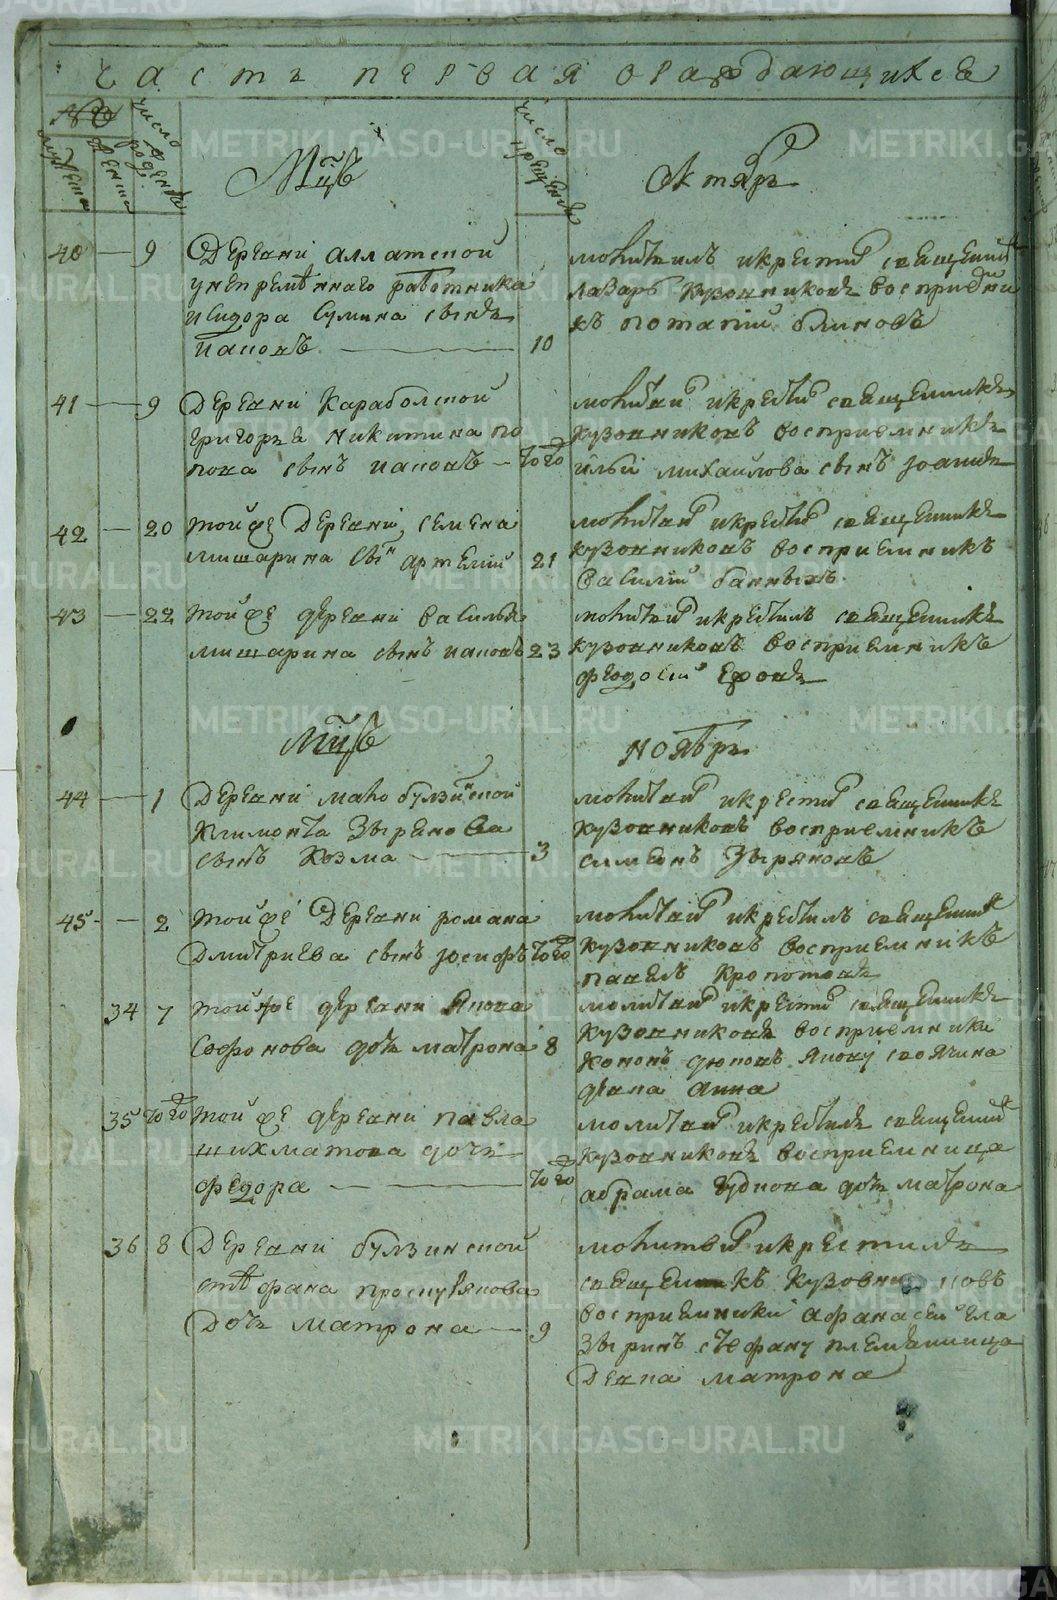 часть первая о раждающихся
№
мужеска
женска
число рожденїя
Мцъ
число крещенїя
Октябрь
40 — 9 Деревни аллатской
унепремѣннаго работника
исидора Сумина сынъ
иаковъ — 10
молитвилъ икрестил священник
лазарь кузовниковъ восприемни
къ потапий блиновъ
41 — 9 Деревни Караболской
григорья никитина по
пова сынъ иаковъ — того
молитвил икрестил священникъ
кузовниковъ восприемникъ
ильи михайлова сынъ іоаннъ
42 — 20 тойже Деревни семена
мишарина сын артемий 21
молитвил икрестил священникъ
кузовниковъ восприемникъ
василий банныхъ
43 — 22 тойже деревни василья
мишарина сынъ иаковъ 23
молитвил икрестилъ священникъ
кузовниковъ восприемникъ
феодосий
Мцъ
ноябрь
44 — 1 Деревни мало булзинской
климонта Зырянова
сынъ козма — 3
молитвил икрестил священникъ
кузовниковъ восприемникъ
симеонъ Зыряновъ
45 — 2 тойже Деревни романа
Дмитриева сынъ іосифъ того
молитвил икрестилъ священник
кузовниковъ восприемникъ
павелъ кропотовъ
34 7 тойже деревни якова
Софонова дочь матрона 8
молитвил икрестил священникъ
кузовниковъ восприемники
кононъ якову своячина
девка анна
35 того тойже деревни павла
шихматова дочь
федора — того
молитвил икрестилъ священник
кузовниковъ восприемница
абрама дочь матрона
36 8 Деревни булзинской
стефана проскурякова
Дочь матрона — 9
молитвил икрестилъ
священникъ кузовниковъ
восприемники афанасей
Зыринъ стефану племянница
Девка матрона